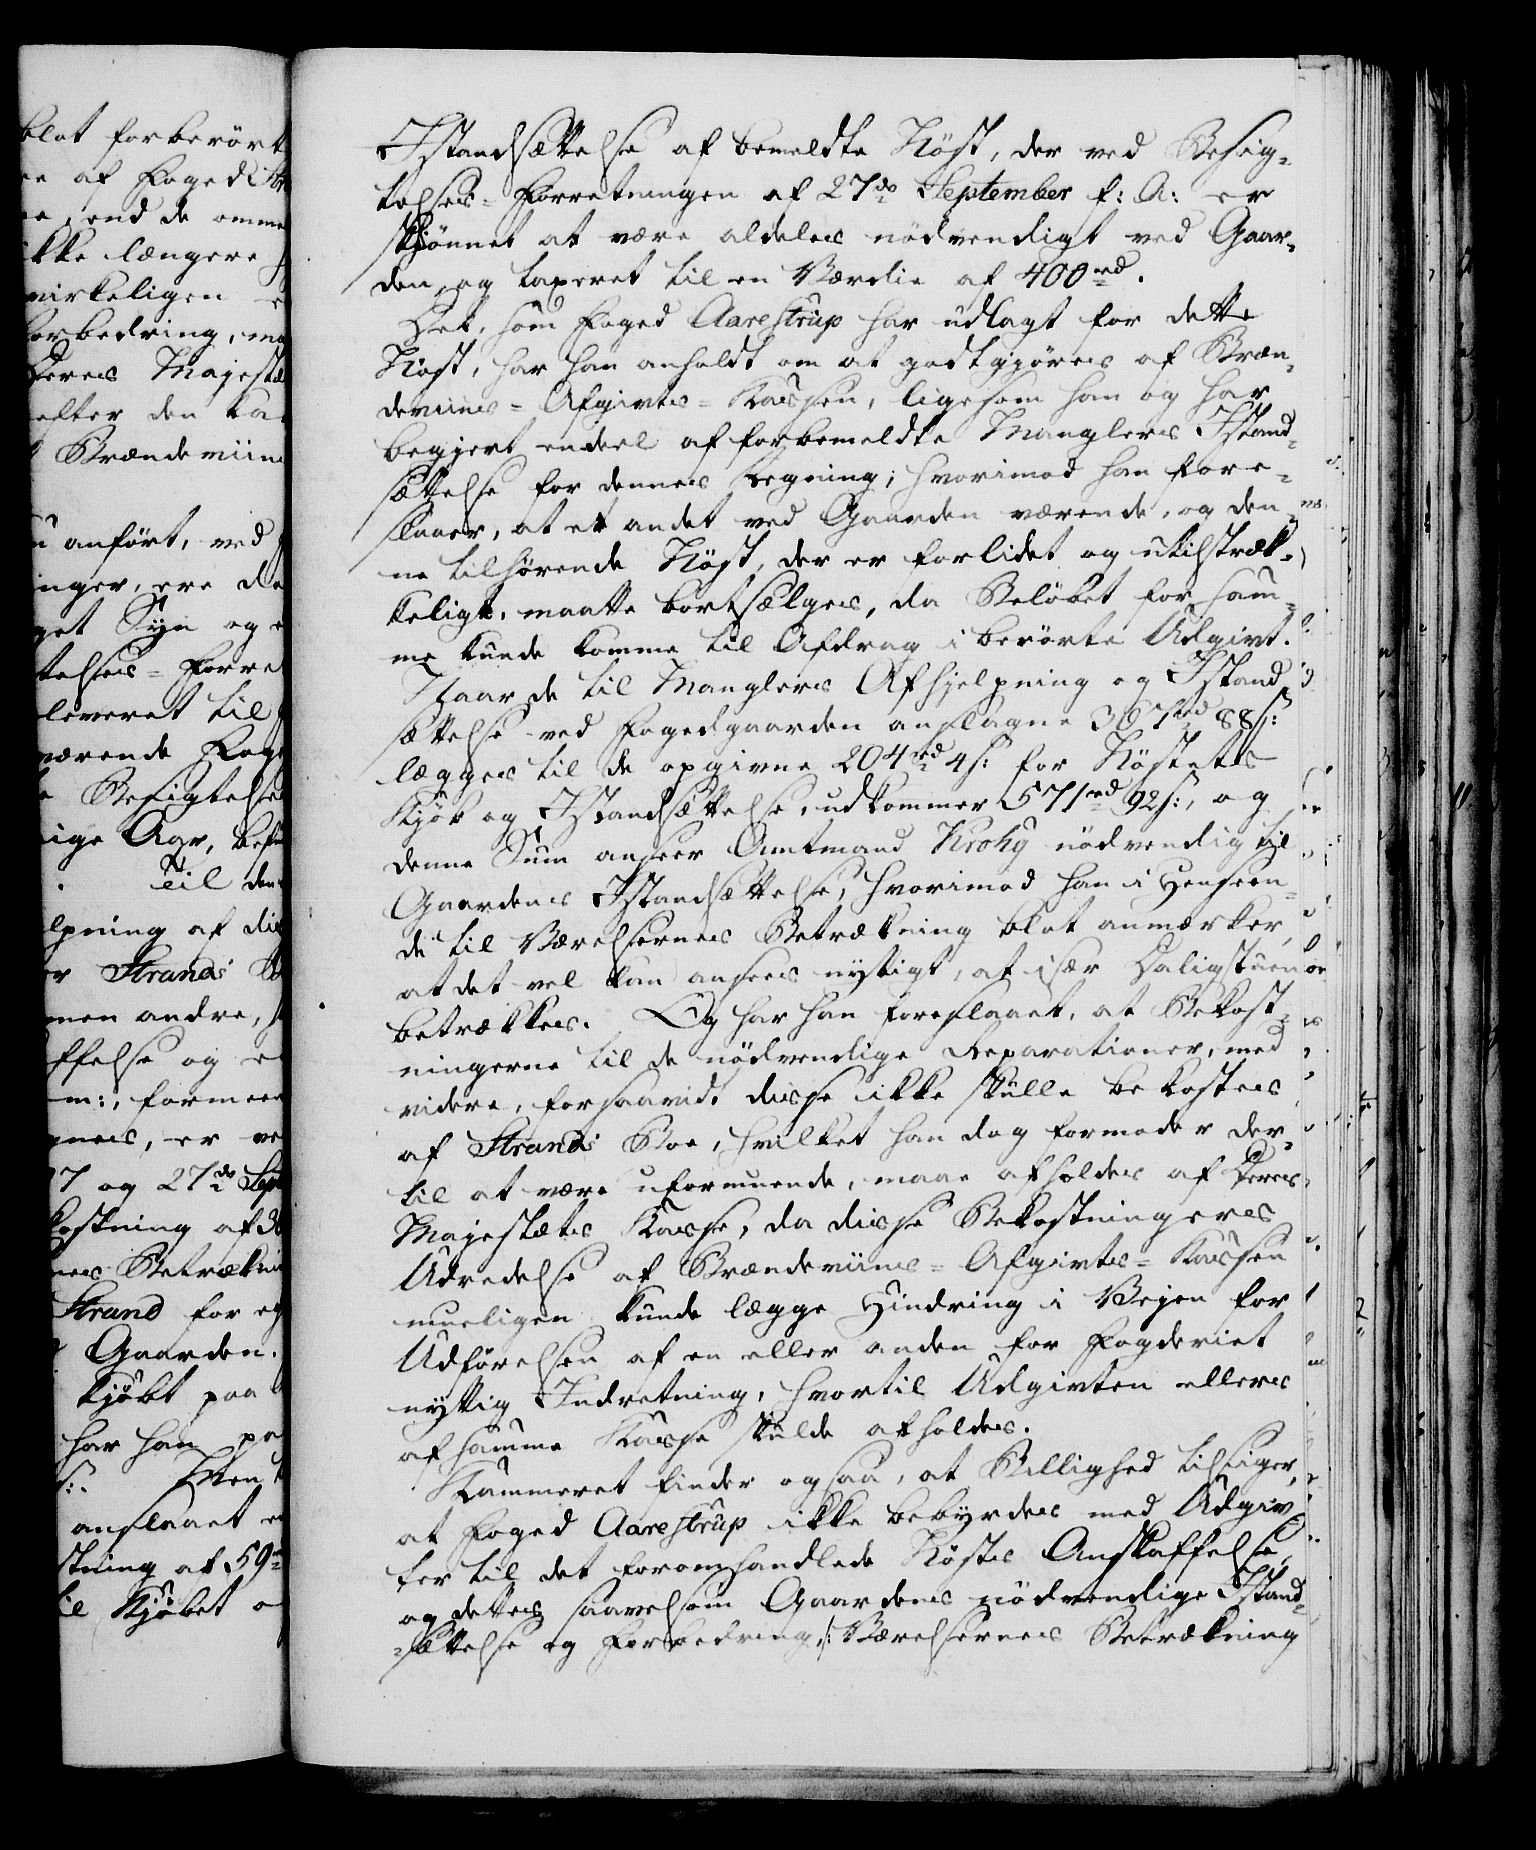 blot forberørt
re af Foged
re, end de omme
ikke længere
virkeligen
forbedring, ma
Deres Majestæ
efter den
Brændeviins
anført, ved
inger, ere de
get Syn og
telses-Forre
leveret til
værende Fog
Besigtelse
rige Aar, bef
Til den
lpning af dis
er Strands
men andre,
ffelse og
m:, formeen
gnes, er ve
27 og 27de Sept
kostning af
nes Betrækni
Strand for
Gaarden.
Kjøbt paa
har han pa
ß:. Men
anslaaet
stning af 59rd
til Kjøbet o
Istandsættelse af bemeldte Nøst, der ved Besig-
telses-Forretningen af 27de September f: A: er
skjønnet at være aldeles nødvendigt ved Gaar-
den, og taxeret til en Værdie af 400rd.
Det, som Foged Aarestrup har udlagt for dette
Nøst, har han anholdt om at godtgjøres af Bræn-
deviins-Afgivts-Kassen, ligesom han og har
begjert endeel af forbemeldte Manglers Istand-
sættelse for dennes Regning; hvorimod han fore-
slaaer, at et andet ved Gaarden værende, og den-
ne tilhørende Nøst, der er forlidet og utilstræk-
keligt, maatte bortsælges, da Beløbet for sam-
me kunde komme til Afdrag i berørte Udgivt.
Naar de til Manglers Afhjelpning og Istand-
sættelse ved Fogedgaarden anslagne 367rd 88ß:
lægges til de opgivne 204rd 4ß: for Nøstets
Kjøb og Istandsættelse, udkommer 571rd 92ß:, og
denne Sum anseer Amtmand Krohg nødvendig til
Gaardens Istandsættelse, hvorimod han i Henseen-
de til Værelsernes Betrækning blot anmærker,
at det vel kan ansees nyttigt, at især Dagligstuen
betrækkes. Og har han foreslaaet, at Bekost-
ningerne til de nødvendige Reparationer, med
videre, forsaavidt disse ikke skulle bekostes
af Strands Boe, hvilket han dog formoder der-
til at være uformuende, maae afholdes af Deres
Majestæts Kasse, da disse Bekostningers
Udredelse af Brændeviins-Afgivts-Kassen
mueligen kunde lægge Hindring i Vejen for
Udførelsen af en eller anden for Fogderiet
nyttig Indretning, hvortil Udgivten ellers
af samme Kasse skulde afholdes.
Kammeret finder ogsaa, at Billighed tilsiger,
at Foged Aarestrup ikke bebyrdes med Udgiv-
ter til det foromhandlede Nøsts Anskaffelse,
og dettes saavelsom Gaardens nødvendige Istand-
sættelse og Forbedring, /: Værelsernes Betrækning